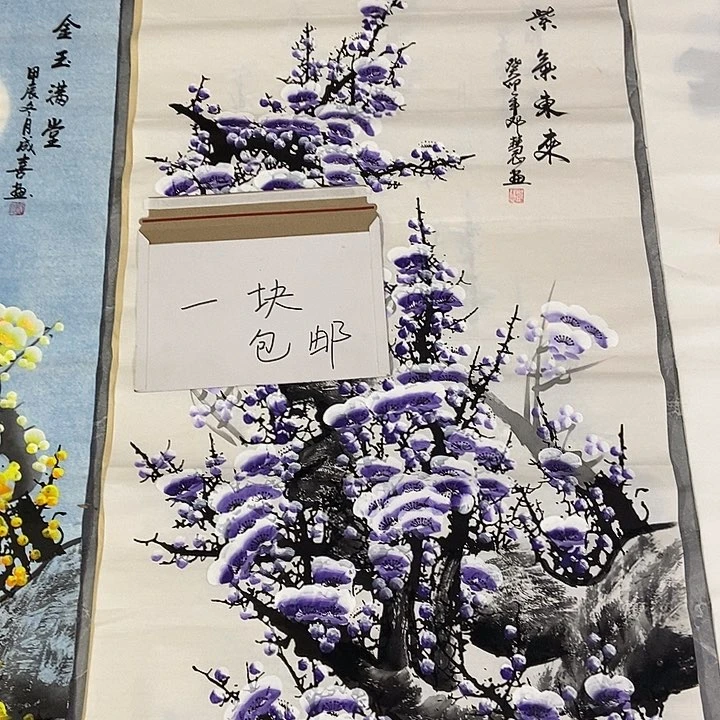 金玉满堂
甲辰年月成喜画
紫氣東来
癸卯年
一块
包邮